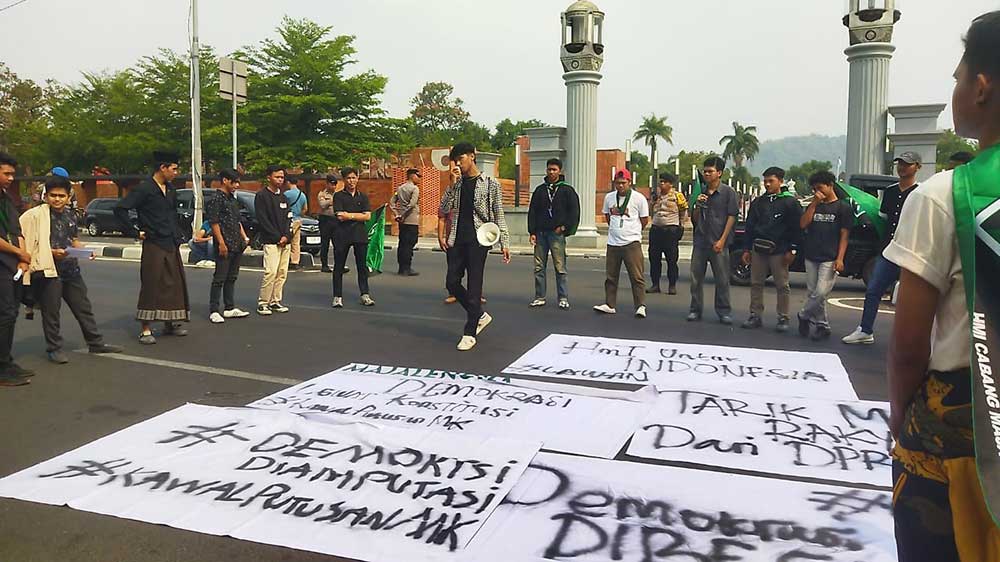 #HMI Untuk
INDONESIA
MAJALENGKA
DEMOKRASI
KONSTITUSI
MK
TARIK M
RAKY
Dari DPR
#DEMOKTSI
DIAMPUTASI
#KAWALPUTUSAN MK
Demokrasi
DIBE
HMI CABANG MA